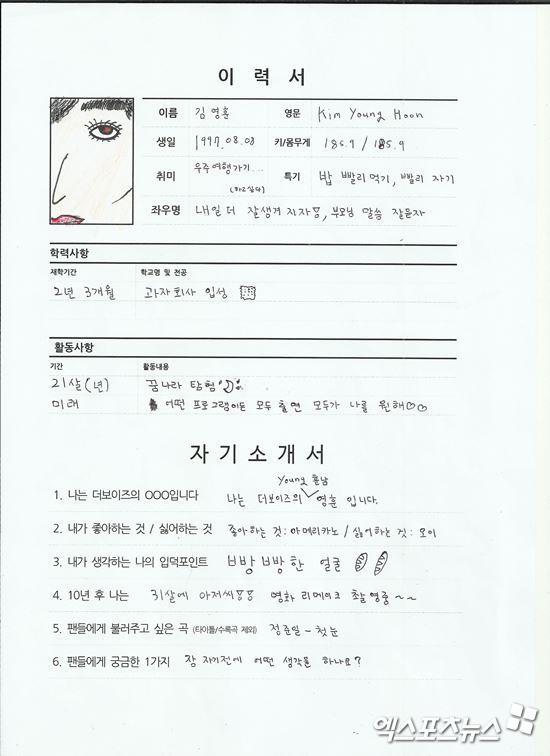 이 력 서
이름 김영훈 영문 Kim Young Hoon
생일 1997.08.08 키/몸무게 186.9 / 185.9
취미 우주여행가기... (하고싶다) 특기 밥 빨리먹기, 빨리 자기
좌우명 내일 더 잘생겨 지자, 부모님 말씀 잘듣자
학력사항
재학기간 학교명 및 전공
2년 3개월 과자회사 입성
활동사항
기간 활동내용
21살(년) 꿈나라 탐험
미래 어떤 프로그램이든 모두 출연 모두가 나를 원해♡♡
자기소개서
Young 훈남
1. 나는 더보이즈의 OOO입니다 나는 더보이즈의 영훈 입니다.
2. 내가 좋아하는 것 / 싫어하는 것 좋아하는 것: 아메리카노 / 싫어하는 것: 오이
3. 내가 생각하는 나의 입덕포인트 빵빵한 얼굴
4. 10년 후 나는 31살에 아저씨 영화 리메이크 초능영훈~~
5. 팬들에게 불러주고 싶은 곡 (타이틀/수록곡 제외) 정준일 - 첫눈
6. 팬들에게 궁금한 1가지 잠 자기전에 어떤 생각을 하나요?
엑스포츠뉴스